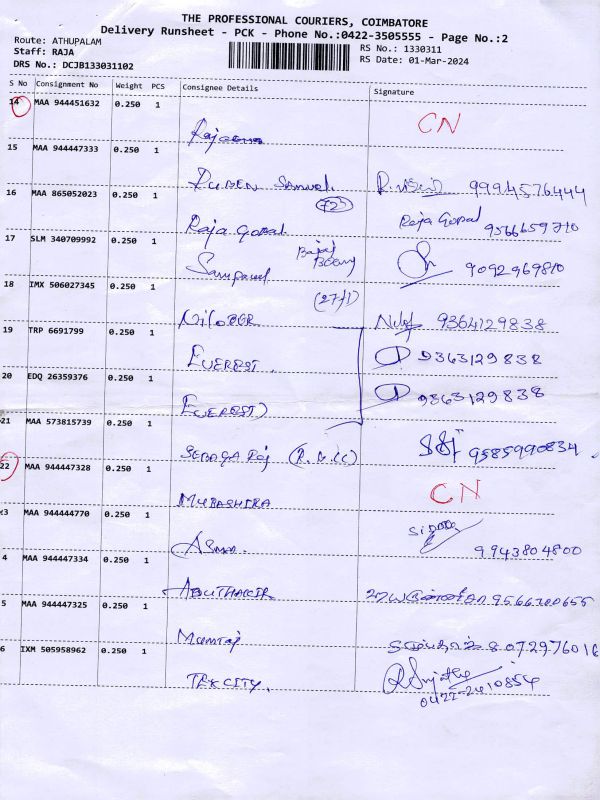 THE PROFESSIONAL COURIERS, COIMBATORE
Delivery Runsheet - PCK - Phone No.:0422-3505555 - Page No.:2
Route: ATHUPALAM
RS No.: 1330311
Staff: RAJA
RS Date: 01-Mar-2024
DRS No.: DCJB133031102
S No Consignment No Weight PCS Consignee Details Signature
14 MAA 944451632 0.250 1
CN
15 MAA 944447333 0.250 1
RUBEN Samuel 9994576444
16 MAA 865052023 0.250 1
Raja Gopal Raja Gopal 9566659710
17 SLM 340709992 0.250 1
Sampaul 9092969810
18 IMX 506027345 0.250 1
(27/1)
NiloBER 9364129838
19 TRP 6691799 0.250 1
EVEREST. 9363129838
20 EDQ 26359376 0.250 1
EVEREST 9363129838
21 MAA 573815739 0.250 1
Raj 9585990834.
22 MAA 944447328 0.250 1
CN
MUBASHIRA
3 MAA 944444770 0.250 1
Asma. 9943804800
4 MAA 944447334 0.250 1
ABUTHAKIR 9566700655
5 MAA 944447325 0.250 1
Mumtaj 8072976016
6 IXM 505958962 0.250 1
TEK CITY. 0422-2410854